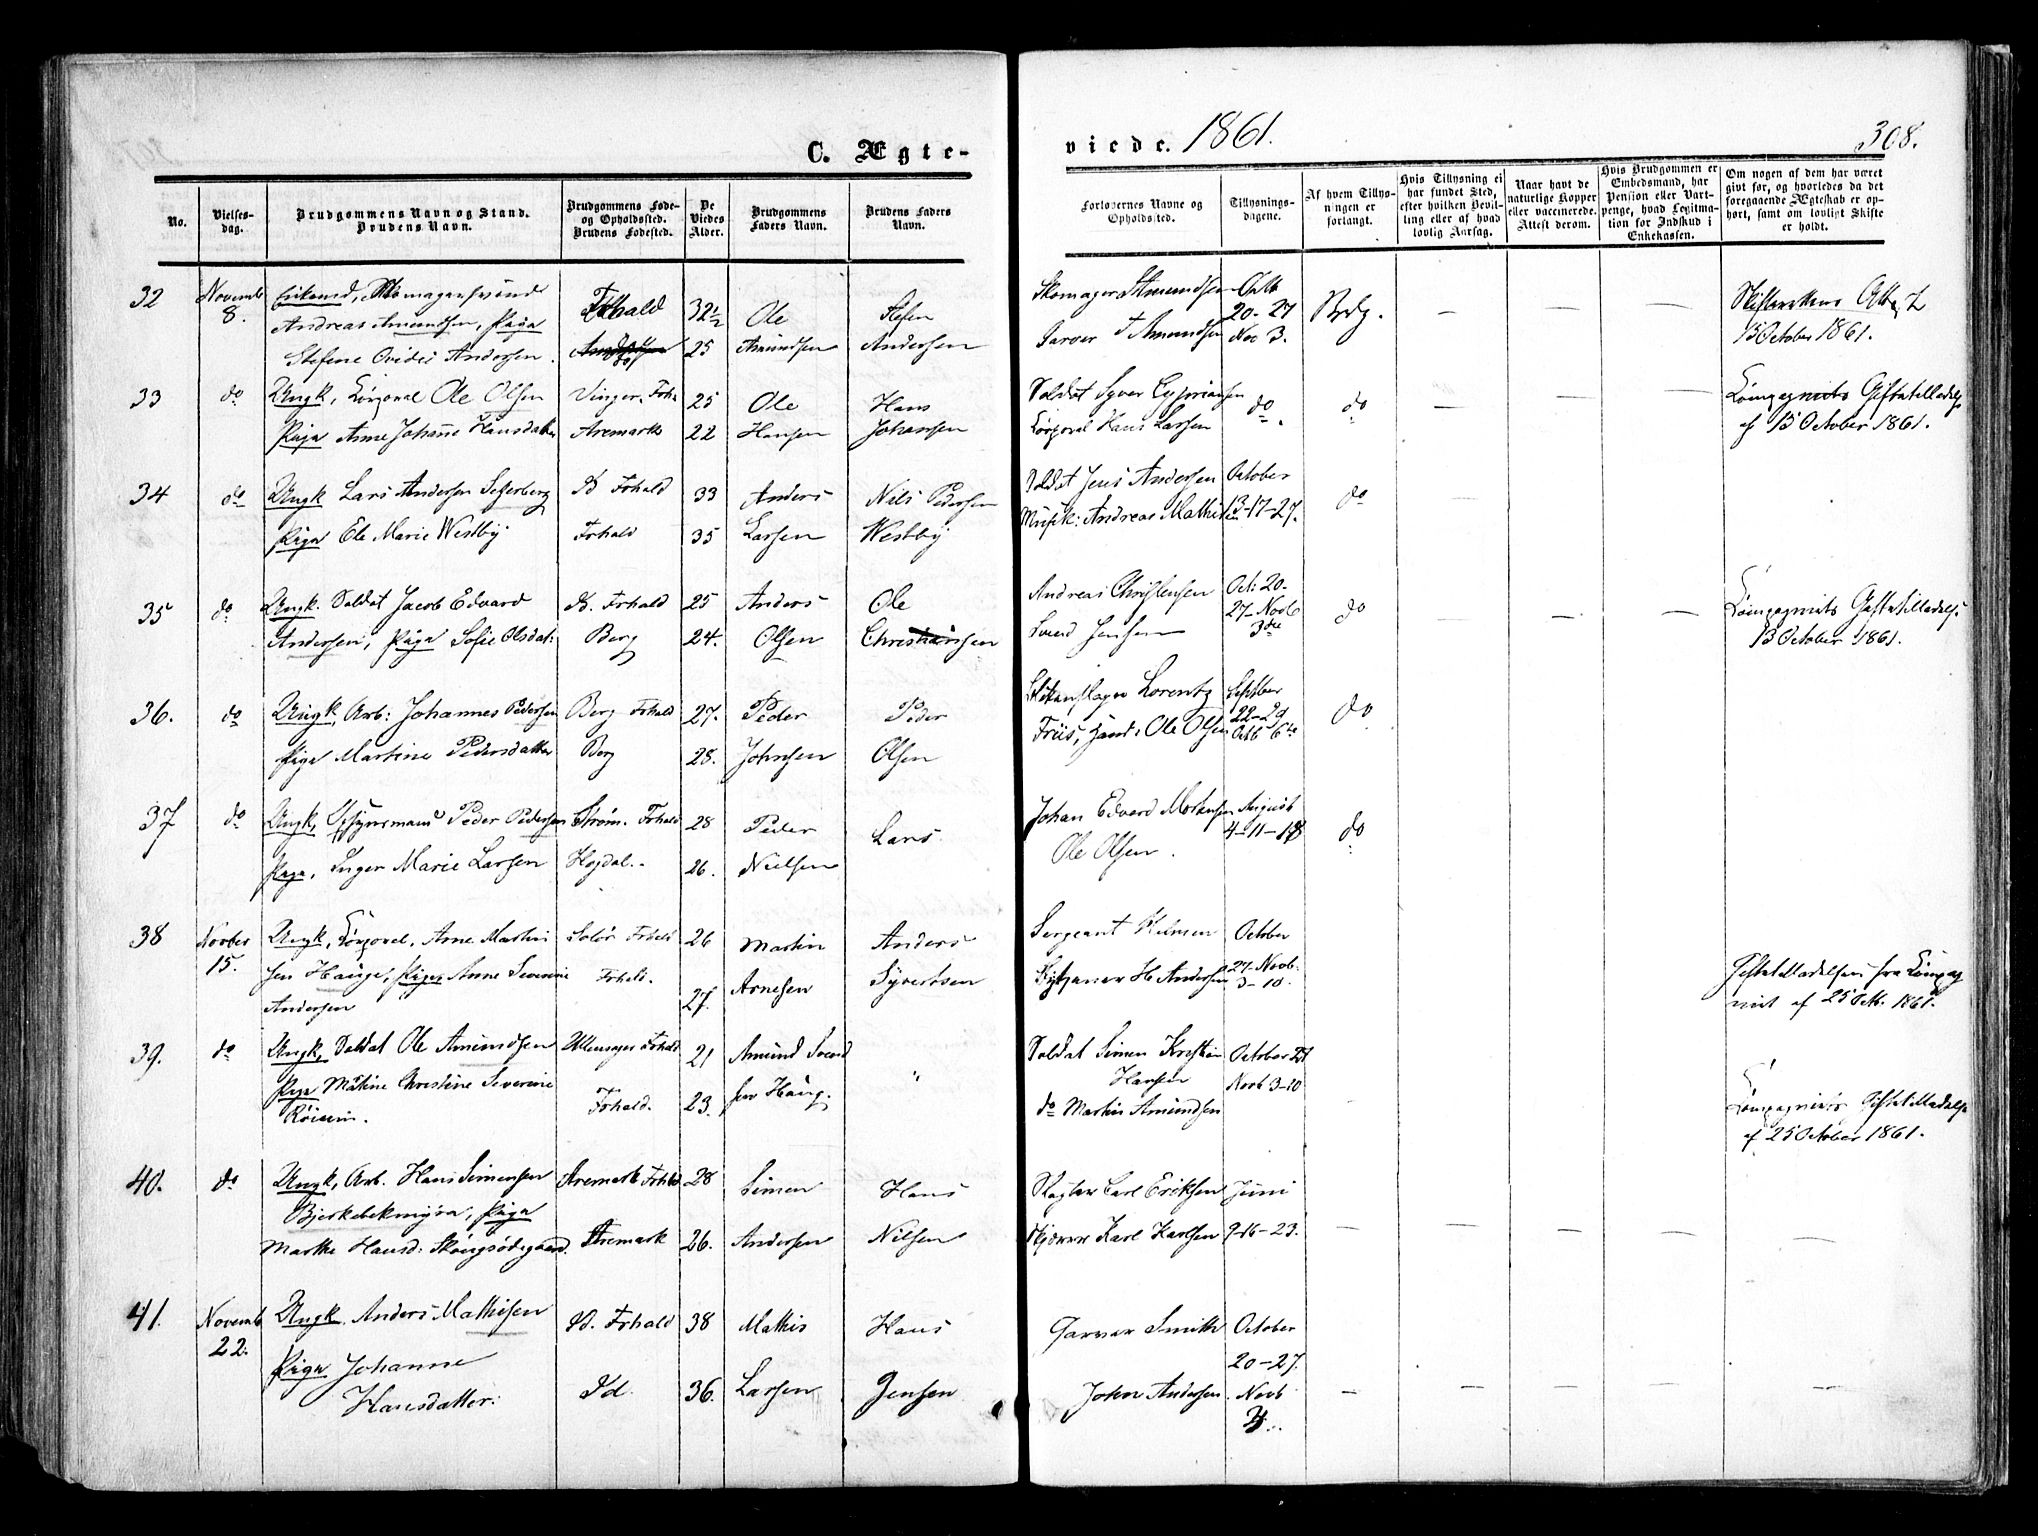 C. Ægte-
viede. 1861. 308.
No. Vielses-dag. Brudgommens Navn og Stand. Brudens Navn. Brudgommens Føde- og Opholdssted. Brudens Fødested. De Viedes Alder. Brudgommens Faders Navn. Brudens Faders Navn. Forlovernes Navne og Opholdssted. Tillysnings-dagene. Af hvem Tillysningen er forlangt. Hvis Tillysning ei har fundet Sted, efter hvilken Bevilling eller af hvad lovlig Aarsag. Naar havt de naturlige Kopper eller vaccinerede. Attest derom. Hvis Brudgommen er Embedsmand, har Pension eller Vartpenge, hvad Legitimation for Indskud i Enkekassen. Om nogen af dem har været givt før, og hvorledes da det foregaaende Ægteskab er ophørt, samt om lovligt Skifte er holdt.
32 Novemb Enkemd, Skomagersvend Frhald 32½ Ole Stefen Skomager Amundsen Octb Brdg. — — — —
8. Andreas Amundsen, Piga 25 Amundsen Andersen Garver T Amundsen 20-27 Nov 3. 13 October 1861.
Stefene Ovidie Andersen.
33 do Ungk, Corporal Ole Olsen Vinger. Frh. 25 Ole Hans Soldat Syver Cypriansen do do — — — Compagniets Giftetilladelse
Piga Anne Johanne Hansdatter Aremark 22 Hansen Johansen Corporal Hans Larsen af 13 October 1861.
34 do Ungk Lars Andersen Id Frhald 33 Anders Nils Pedersen Soldat Jens Andersen October do — — —
Piga Ele Marie Westby Frhald 35 Larsen Westby Musik: Andreas Mathisen 13-17-27.
35 do Ungk. Soldat Jacob Edvard Id. Frhald 25 Anders Ole Andreas Christensen Oct: 20- do — — — Compagniets Giftetilladelse
Andersen, Piga Sofie Olsdat: Berg 24. Olsen Christiansen Svend Jensen 27-Novb 3die 13 October 1861.
36. do Ungk, Arb: Johannes Pedersen Berg Frhald 27. Peder Peder Lorentz Septber do
Piga Martine Pedersdatter Berg 28. Johnsen Olsen Friis, Ole Olsen 22-29 Octb 6te
37 do Ungk, Peder Pedersen Strøm. Frhald 28 Peder Lars Johan Edvard Mortensen August do
Piga, Inger Marie Larsen Hogdal. 26. Nielsen Ole Olsen. 4-11-18
38 Novber Ungk, Corporal, Arne Martin Solør Frhald 26 Martin Anders Sergeant Helmsen October
15. sen Hauge, Piga Anne Severine Frhald. 27. Arnesen Syvertsen H. Andersen 27-Novb. 3-10. Giftetilladelsen fra Compag
Andersen niet af 25 Octb. 1861.
39. do Ungk, Soldat Ole Amundsen Ullensager Frhald 21 Amund Svend " Soldat Simen Kristian October 27
Piga Martine Christine Severine Frhald. 23. sen Haug. Hansen Novb 3-10 Compagniets Giftetilladelse
Røisum. do Martin Amundsen af 25 October 1861.
40. do Ungk, Arb. Hans Simensen Aremark Frhld 28 Simen Hans Carl Eriksen Juni
Bjerkebekmyra, Piga
Marthe Hansd: Skougsødegaard Aremark 26. Andersen Nilsen Karl Karlsen 9-16-23. — — — — —
41. Novemb Ungk. Anders Mathisen Id. Frhald 38 Mathis Hans Garver Smith October
22. Piga Johanne 20-27.
Hansdatter. Id. 36. Larsen Jensen John Andersen. Novb — — — — —
3.